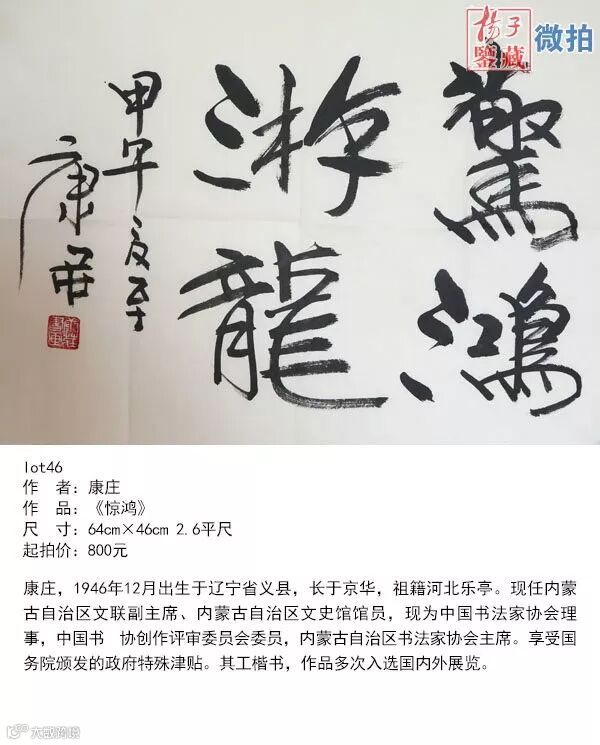 楊子
鑒藏
微拍
驚鴻
游龍
甲午夏至
康莊
lot46
作 者：康庄
作 品：《惊鸿》
尺 寸：64cm×46cm 2.6平尺
起拍价：800元
康庄，1946年12月出生于辽宁省义县，长于京华，祖籍河北乐亭。现任内蒙
古自治区文联副主席、内蒙古自治区文史馆馆员，现为中国书法家协会理
事，中国书 协创作评审委员会委员，内蒙古自治区书法家协会主席。享受国
务院颁发的政府特殊津贴。其工楷书，作品多次入选国内外展览。
大咸跨境